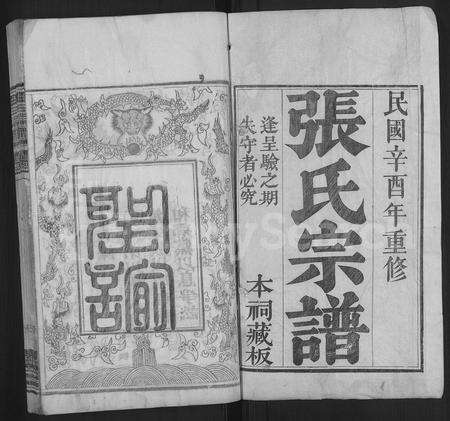 民國辛酉年重修
張氏宗譜
逢呈驗之期
失守者必究
本祠藏板
聖諭